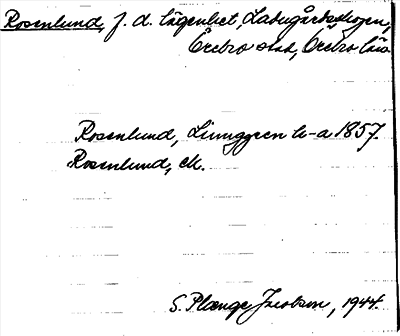 Rosenlund, f. d. lägenhet, Ladugårdsskogen,
Örebro stad, Örebro län
Rosenlund, Ljunggren to-a 1857.
Rosenlund, ek.
S. Plænge Jacobson, 1944.